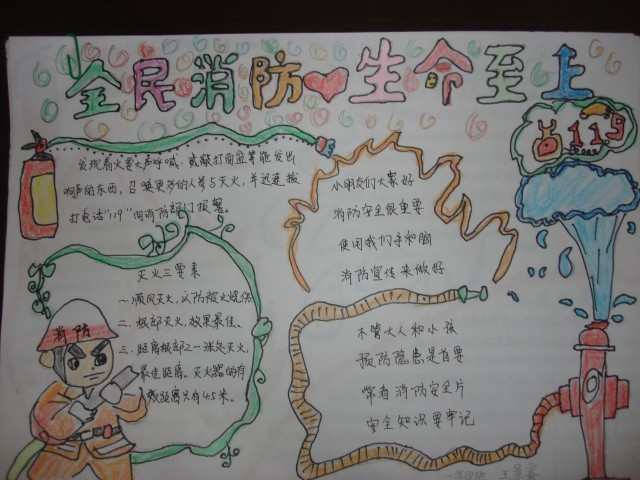 全民消防 生命至上
119
发现着火要大声呼喊，或敲打面盆等能发出
响声的东西，召唤更多的人参与灭火，并迅速拨
打电话"119"向消防部门报警。
小朋友们大家好
消防安全很重要
使用我们手和脑
消防宣传来做好
灭火三要素
一、顺风灭火，以防被火烧伤
二、根部灭火，效果最佳。
三、距离根部2—3米处灭火，
最佳距离。灭火器的有
效距离只有4.5米。
消防
不管大人和小孩
预防隐患是首要
常看消防安全片
安全知识要牢记